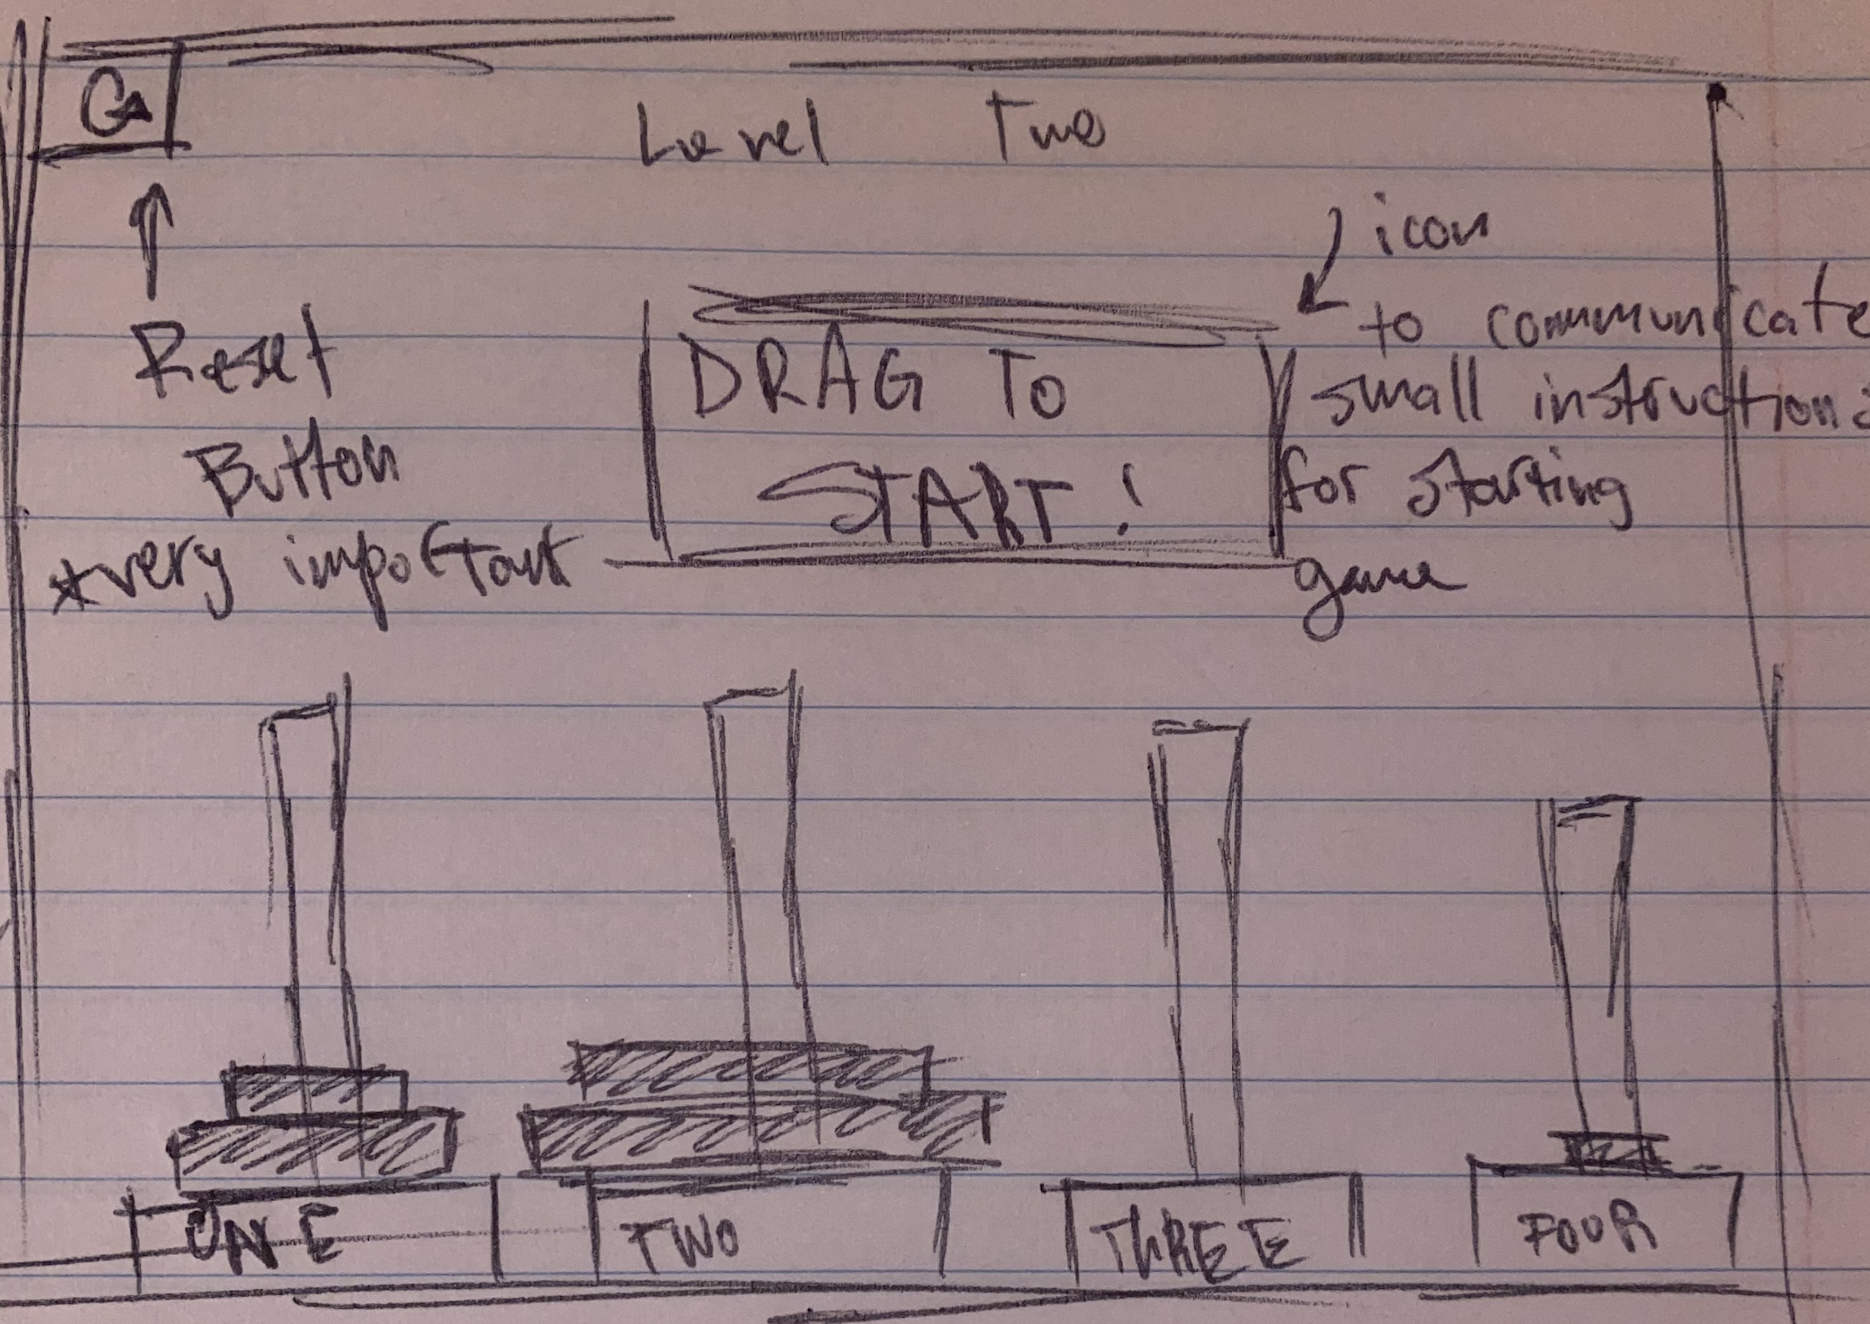 Level Two
Reset
Button
*very important
DRAG TO
START!
icon
to communicate
small instructions
for starting
game
ONE
TWO
THREE
FOUR